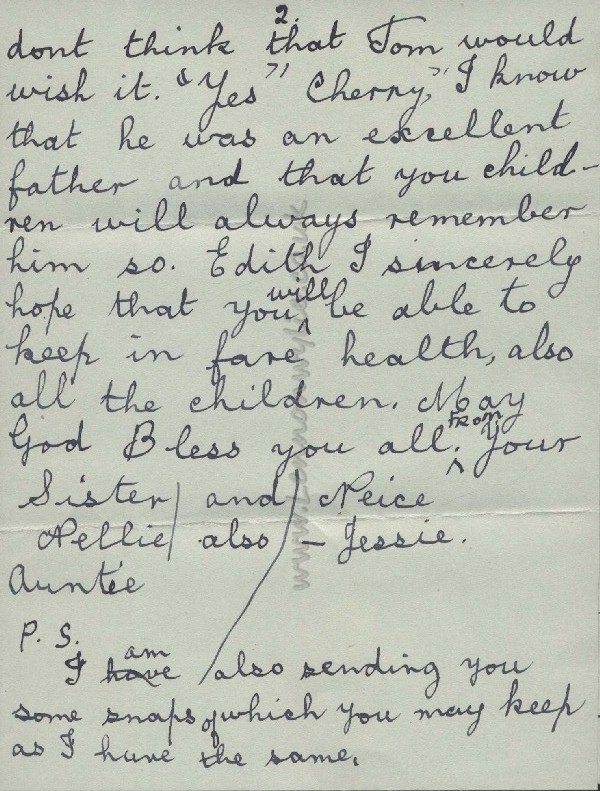 2.
dont think that Tom would
wish it. "Yes" "Cherry," I know
that he was an excellent
father and that you child-
ren will always remember
him so. Edith I sincerely
hope that you will be able to
keep in fare health, also
all the children. May
God Bless you all. From Your
Sister and Neice
Nellie also - Jessie.
Auntie
P. S.
I have am also sending you
some snaps of which you may keep
as I have the same.